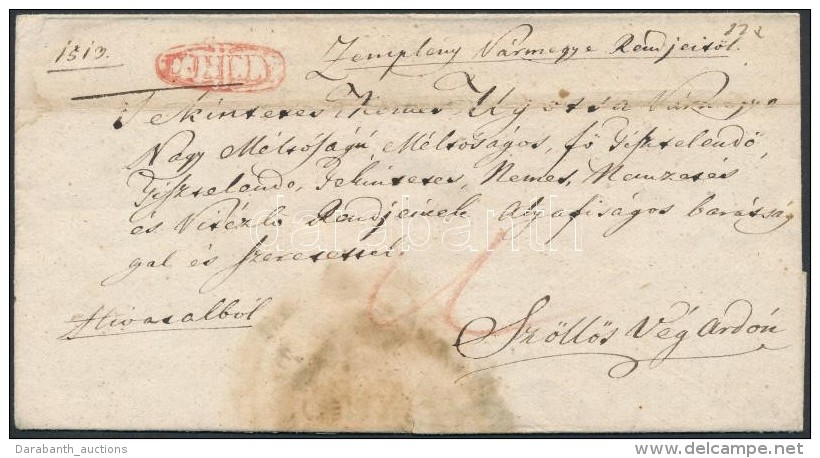 1513.
UJHELY
Zemplény Vármegye Rendjeitöl.
Tekintetes Nemes Ugotsa Vármegye
Nagy Méltóságú Méltóságos, fö Tisztelendö
Tisztelendö, Tekintetes, Nemes, Nemzetes
és Vitézlö Rendjeinek Atyafiságos barátság
gal és Szeretettel.
Hivatalból
Szöllös Vég Ardón
darabanth
Darabanth_auctions
delcampe.net